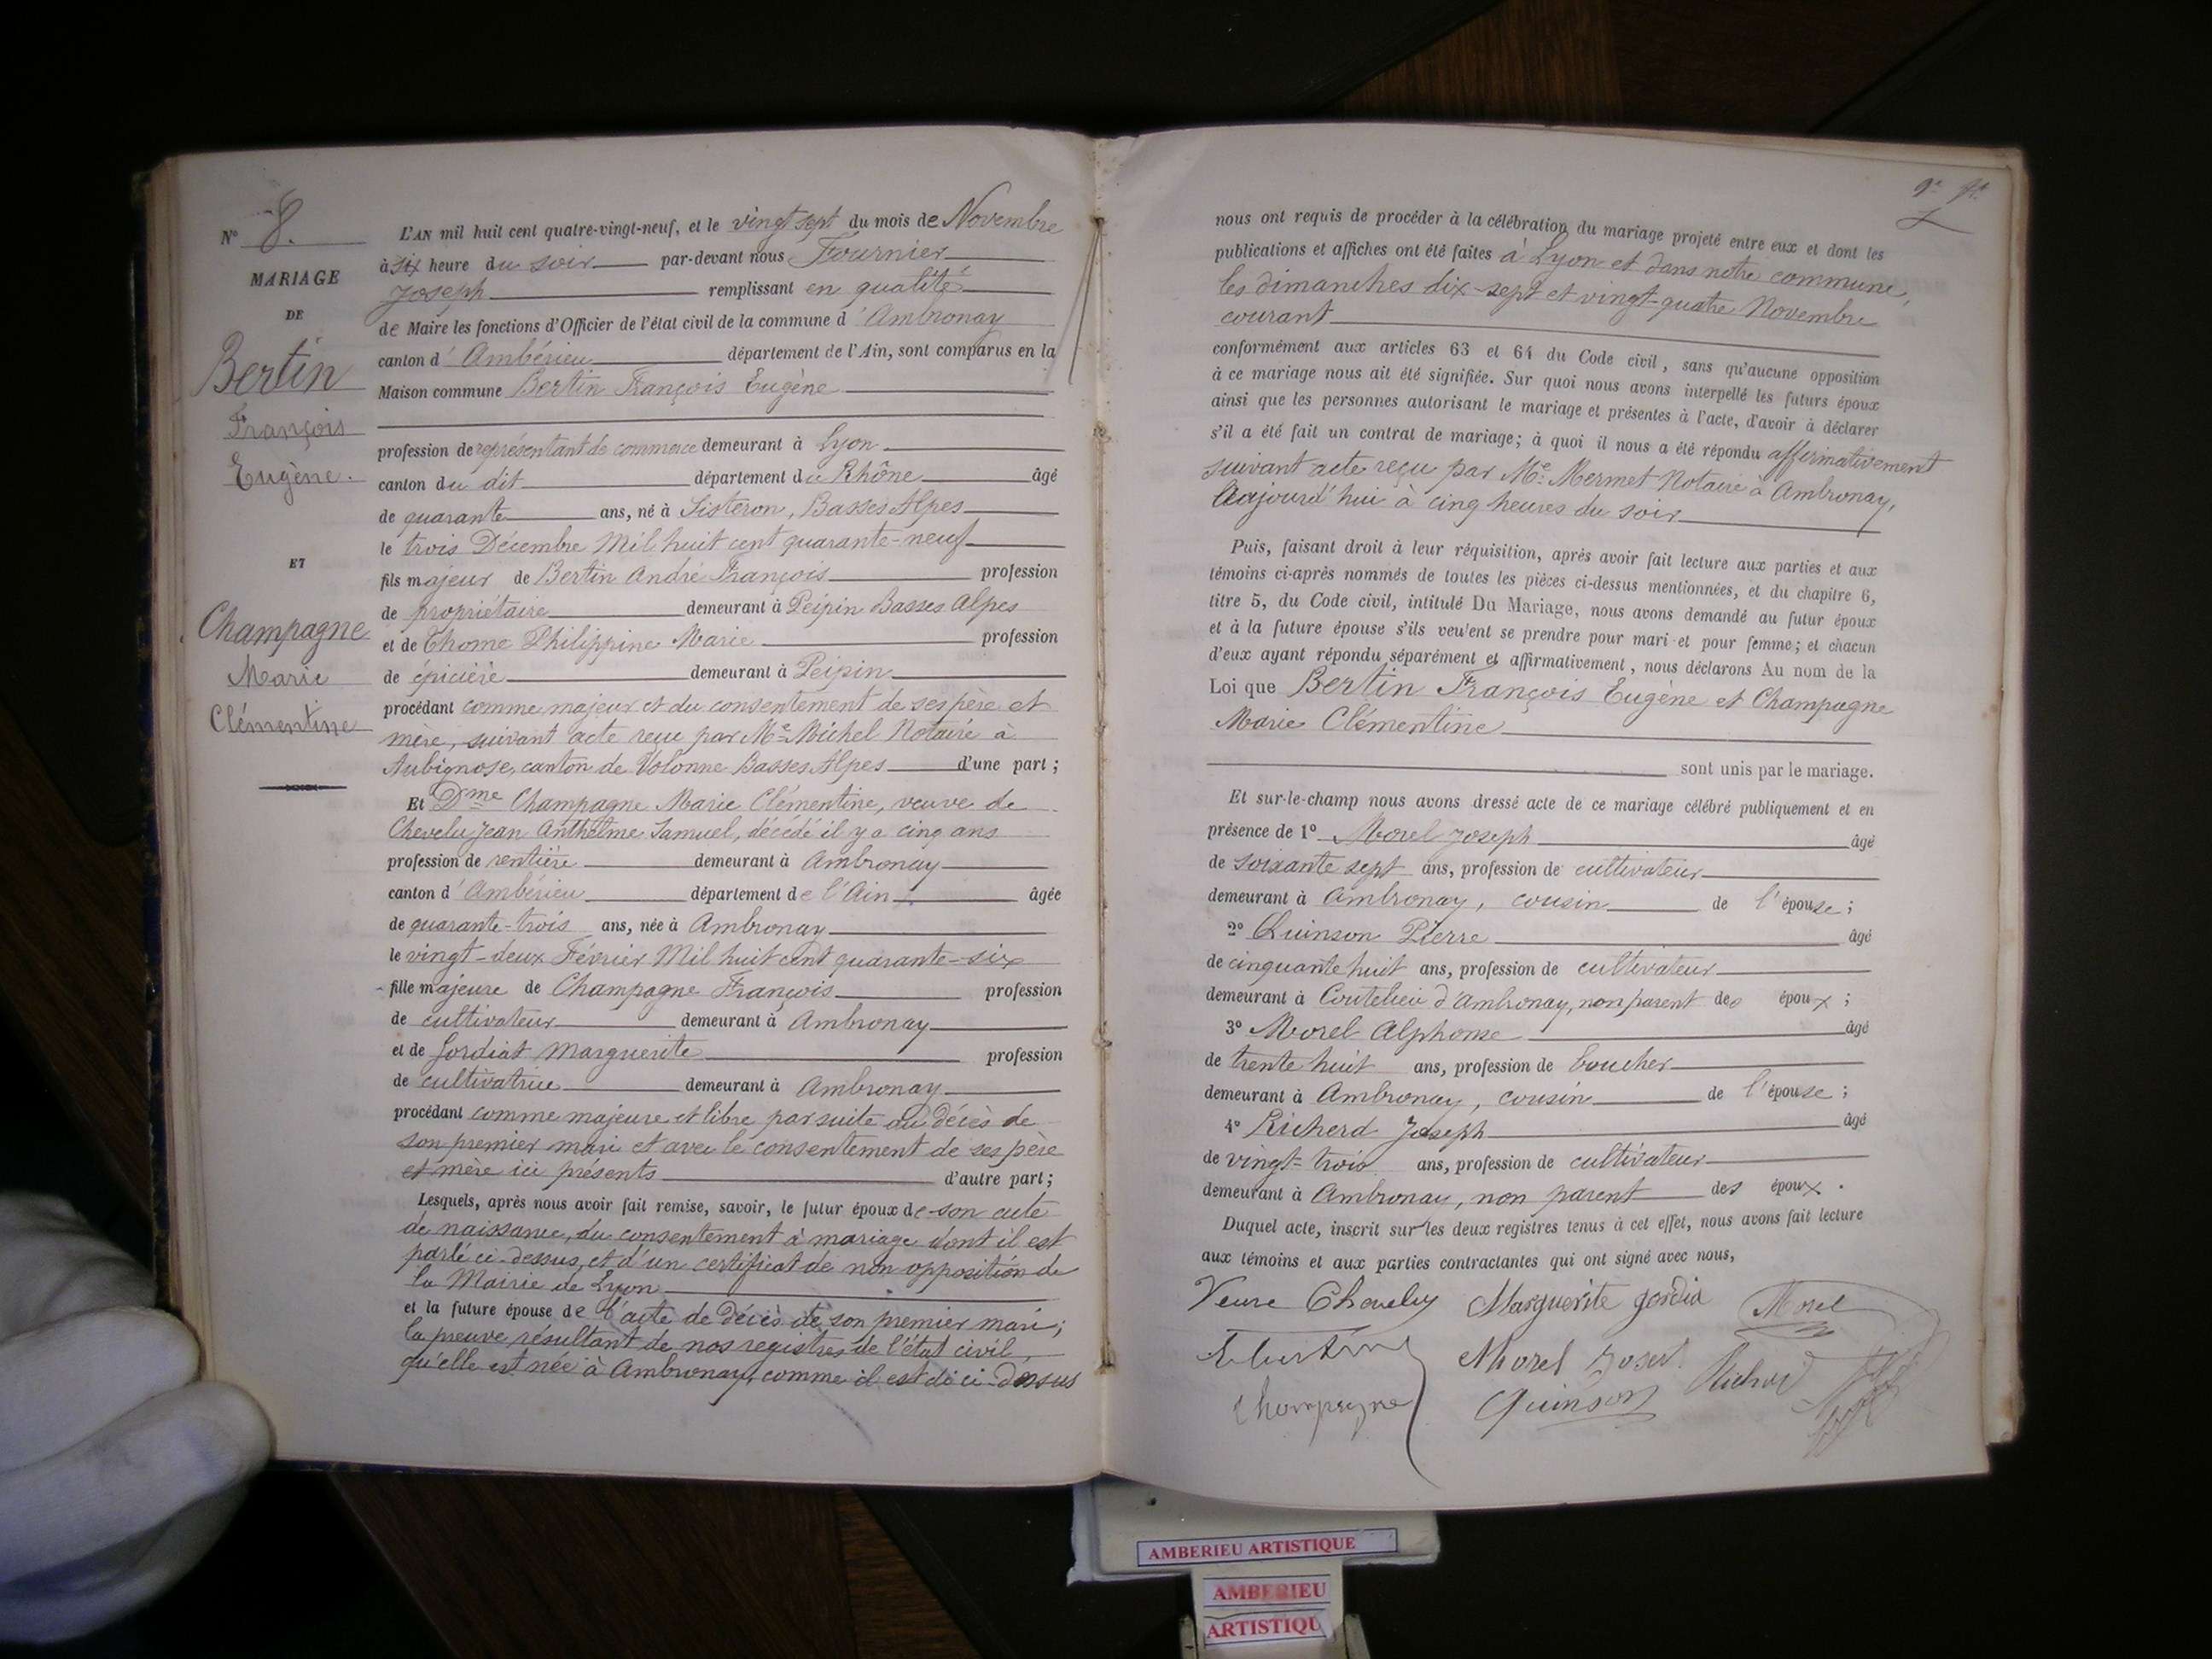 N° 8.
MARIAGE
DE
Bertin
François
Eugène.
ET
Champagne
Marie
Clémentine
L'AN mil huit cent quatre-vingt-neuf, et le vingt sept du mois de Novembre
à six heure du soir par-devant nous Fournier
Joseph remplissant en qualité
de Maire les fonctions d'Officier de l'état civil de la commune d'Ambronay
canton d'Ambérieu département de l'Ain, sont comparus en la
Maison commune Bertin François Eugène
profession de représentant de commerce demeurant à Lyon
canton du dit département du Rhône âgé
de quarante ans, né à Sisteron, Basses Alpes
le trois Décembre Mil huit cent quarante-neuf
fils majeur de Bertin André François profession
de propriétaire demeurant à Peipin Basses Alpes
et de Thome Philippine Marie profession
de épicière demeurant à Peipin
procédant comme majeur et du consentement de ses père et
mère, suivant acte reçu par Me Michel Notaire à
Aubignose, canton de Volonne Basses Alpes d'une part ;
Et Dme Champagne Marie Clémentine, veuve de
Chevelu Jean Anthelme Samuel, décédé il y a cinq ans
profession de rentière demeurant à Ambronay
canton d'Ambérieu département de l'Ain âgée
de quarante-trois ans, née à Ambronay
le vingt-deux Février Mil huit cent quarante-six
fille majeure de Champagne François profession
de cultivateur demeurant à Ambronay
et de Gordiat Marguerite profession
de cultivatrice demeurant à Ambronay
procédant comme majeure et libre par suite du décès de
son premier mari et avec le consentement de ses père
et mère ici présents d'autre part ;
Lesquels, après nous avoir fait remise, savoir, le futur époux de son acte
de naissance, du consentement à mariage dont il est
parlé ci-dessus, et d'un certificat de non opposition de
la Mairie de Lyon
et la future épouse de l'acte de décès de son premier mari ;
la preuve résultant de nos registres de l'état civil,
qu'elle est née à Ambronay, comme il est dit ci-dessus
nous ont requis de procéder à la célébration du mariage projeté entre eux et dont les
publications et affiches ont été faites à Lyon et dans notre commune,
les dimanches dix-sept et vingt-quatre Novembre
courant
conformément aux articles 63 et 64 du Code civil, sans qu'aucune opposition
à ce mariage nous ait été signifiée. Sur quoi nous avons interpellé les futurs époux
ainsi que les personnes autorisant le mariage et présentes à l'acte, d'avoir à déclarer
s'il a été fait un contrat de mariage ; à quoi il nous a été répondu affirmativement
suivant acte reçu par Me Mermet Notaire à Ambronay,
Aujourd'hui à cinq heures du soir
Puis, faisant droit à leur réquisition, après avoir fait lecture aux parties et aux
témoins ci-après nommés de toutes les pièces ci-dessus mentionnées, et du chapitre 6,
titre 5, du Code civil, intitulé Du Mariage, nous avons demandé au futur époux
et à la future épouse s'ils veulent se prendre pour mari et pour femme ; et chacun
d'eux ayant répondu séparément et affirmativement, nous déclarons Au nom de la
Loi que Bertin François Eugène et Champagne
Marie Clémentine
sont unis par le mariage.
Et sur-le-champ nous avons dressé acte de ce mariage célébré publiquement et en
présence de 1° Morel Joseph âgé
de soixante sept ans, profession de cultivateur
demeurant à Ambronay, cousin de l'épouse ;
2° Quinson Pierre âgé
de cinquante huit ans, profession de cultivateur
demeurant à Coutelieu d'Ambronay, non parent des époux ;
3° Morel Alphonse âgé
de trente huit ans, profession de boucher
demeurant à Ambronay, cousin de l'épouse ;
4° Richerd Joseph âgé
de vingt-trois ans, profession de cultivateur
demeurant à Ambronay, non parent des époux.
Duquel acte, inscrit sur les deux registres tenus à cet effet, nous avons fait lecture
aux témoins et aux parties contractantes qui ont signé avec nous,
Veuve Chevelu Marguerite gordia Morel
E Bertin Morel Joseph Richerd
Champagne Quinson
AMBERIEU ARTISTIQUE
AMBERIEU
ARTISTIQU